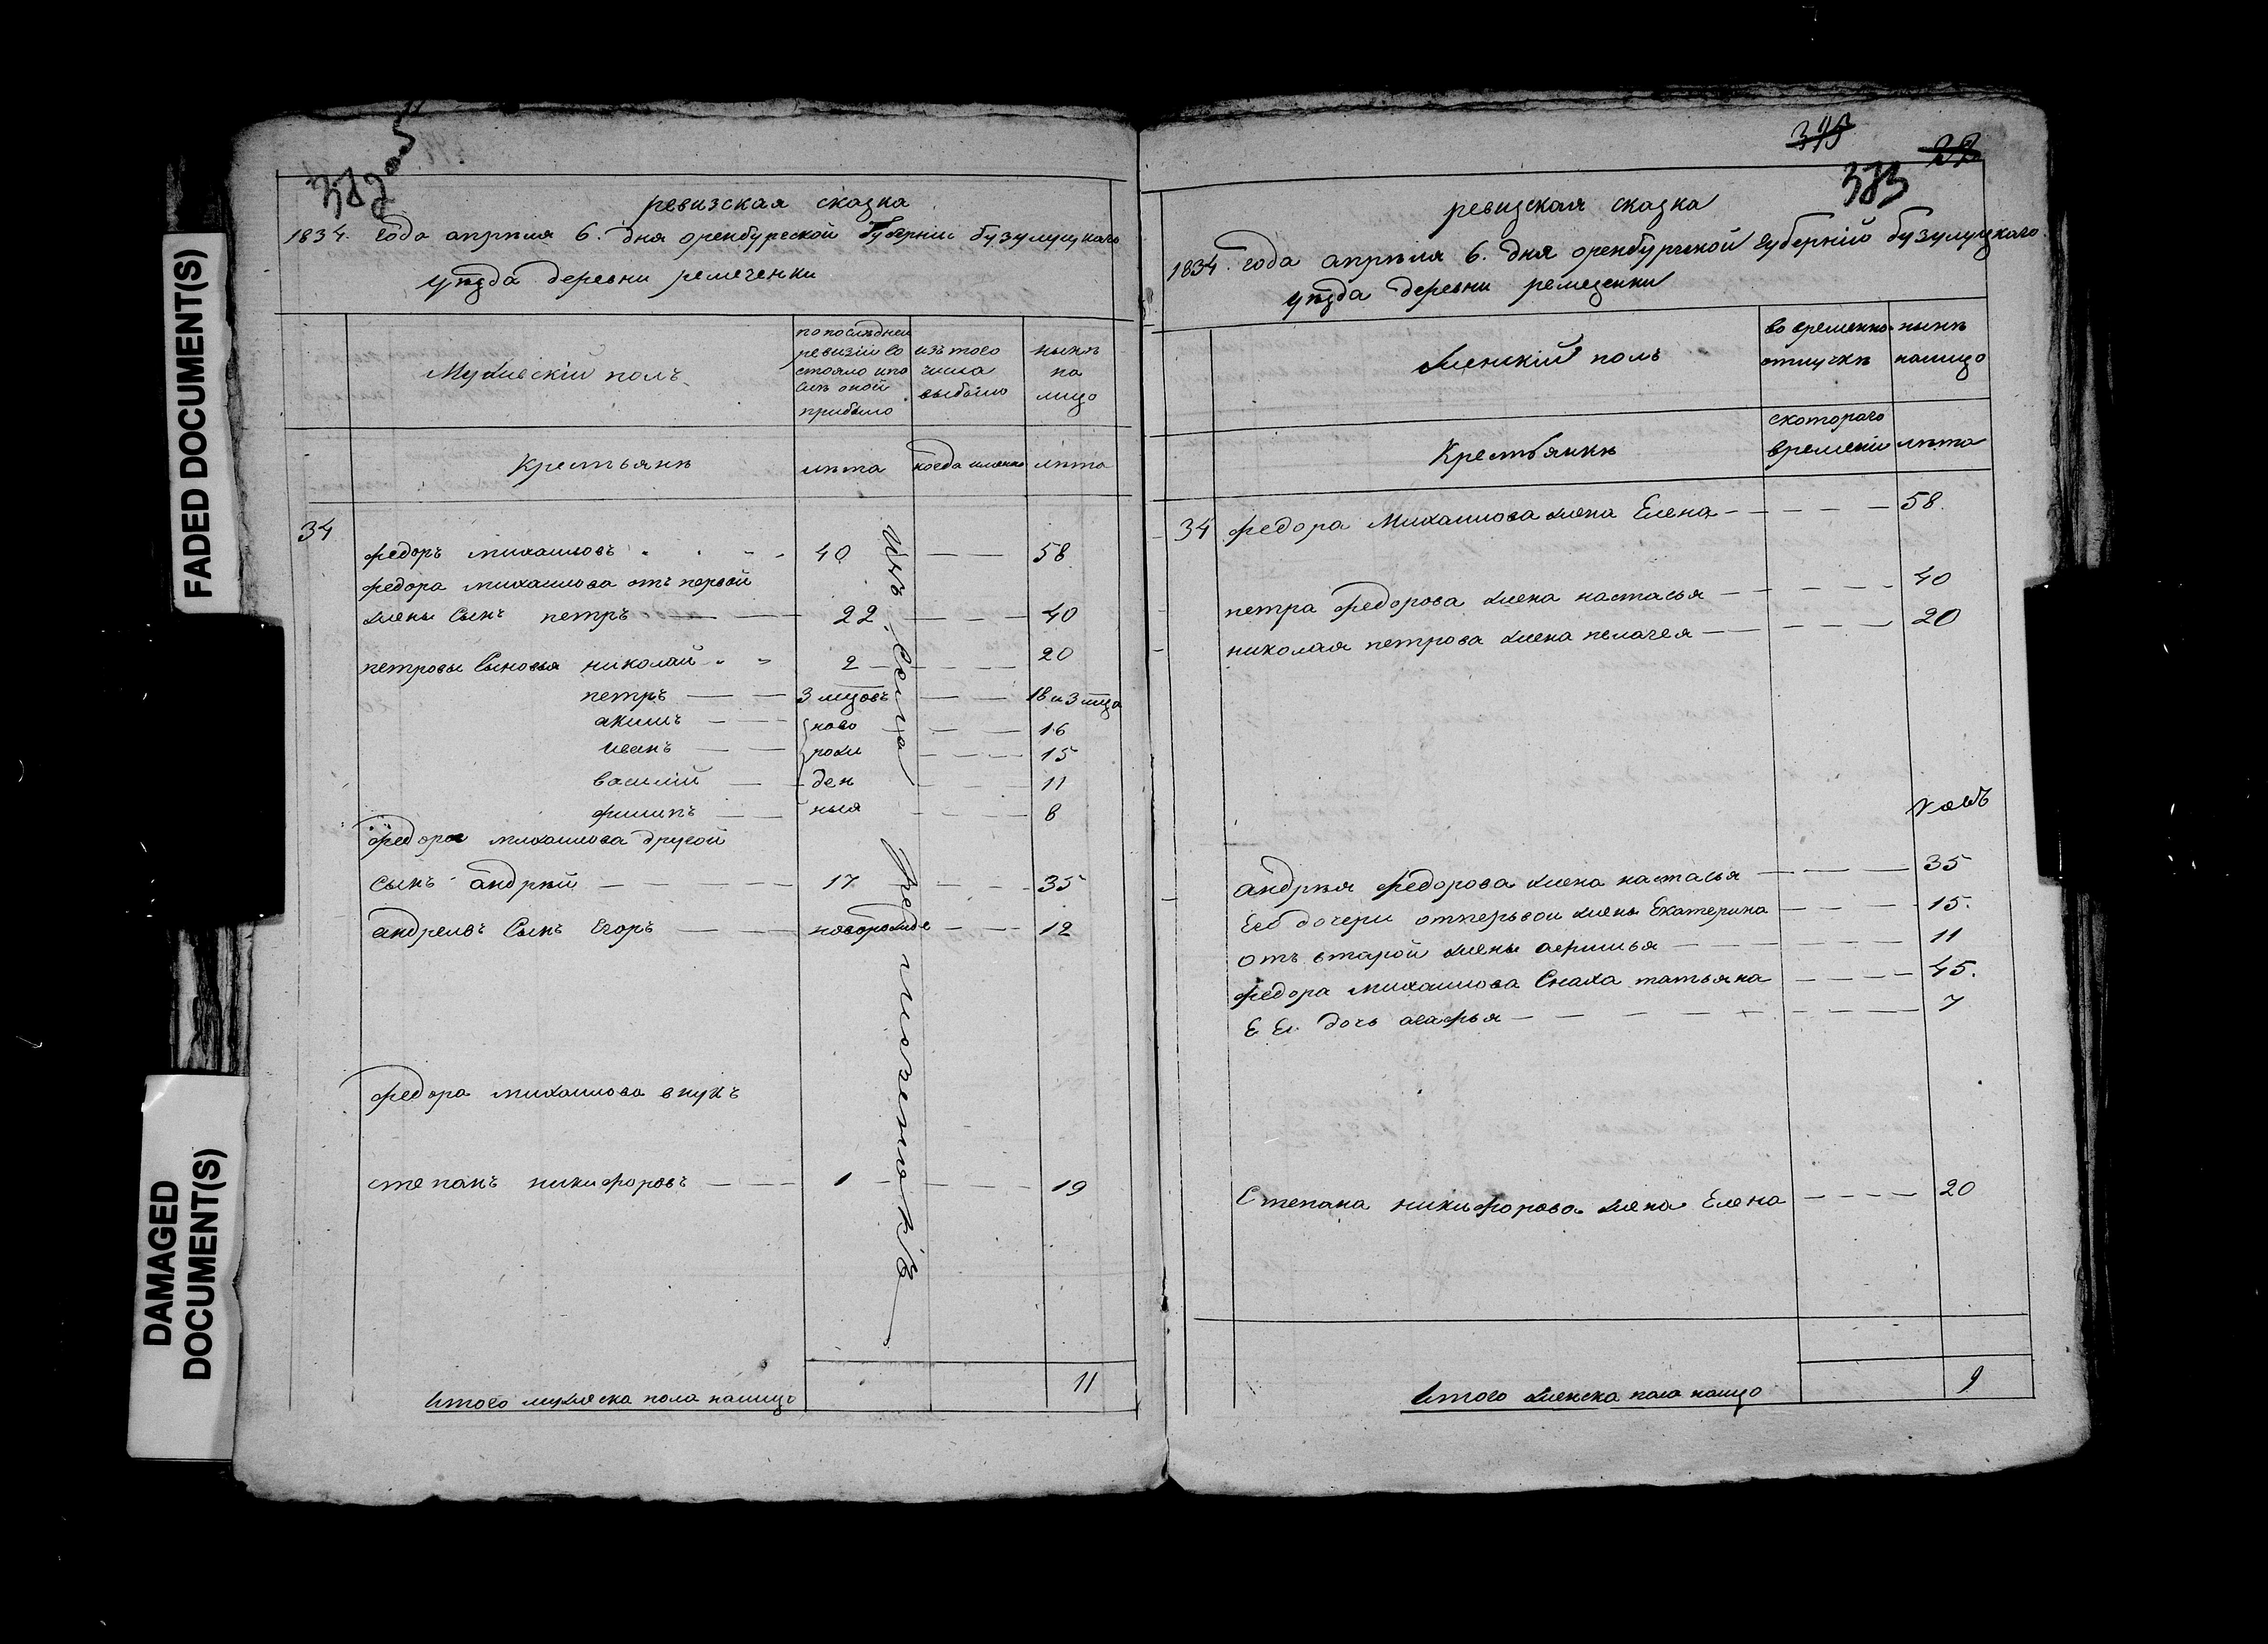 FADED DOCUMENT(S)
DAMAGED DOCUMENT(S)
382
ревизская сказка
1834. года апрѣля 6. дня оренбургской губерніи бузулуцкаго
уѣзда деревни ремеченки
Мужескій полъ
по послѣдней
ревизіи со
стояло и по
слѣ оной
прибыло
изъ того
числа
выбыло
нынѣ
на
лицо
Крестьянѣ
лѣта
когда именно
лѣта
34
федоръ михаиловъ 40 58
федора михаилова отъ первой
жены Сынъ петръ 22 40
петровы Сыновья николай 2 20
петръ 3 мцовъ 18 и 3 мца
акимъ ново 16
иванъ рожи 15
василій ден 11
филипъ ныя 8
федора михаилова другой
сынъ андрѣй 17 35
андреявъ Сынъ Егоръ новорожде 12
федора михаилова внукъ
степанъ никифоровъ 1 19
изъ села
Итого мужеска пола налицо 11
375
27
383
ревизская сказка
1834. года апрѣля 6. дня оренбургской губерній бузулуцкаго
уѣзда деревни ремеценки
Женскій полъ
во временно
отлучкѣ
нынѣ
налицо
Крестьянкѣ
скотораго
времени
лѣта
34 федора Михаилова жена Елена 58
петра федорова жена настасья 40
николая петрова жена пелагея 20
андрѣя федорова жена настасья 35
Ево дочери отпервой жены Екатерина 15.
отъ второй жены 11
федора михаилова Снаха татьяна 45.
Е Ей дочь агафья 7
Степана никифорова жена Елена 20
Итого женска пола налицо 9